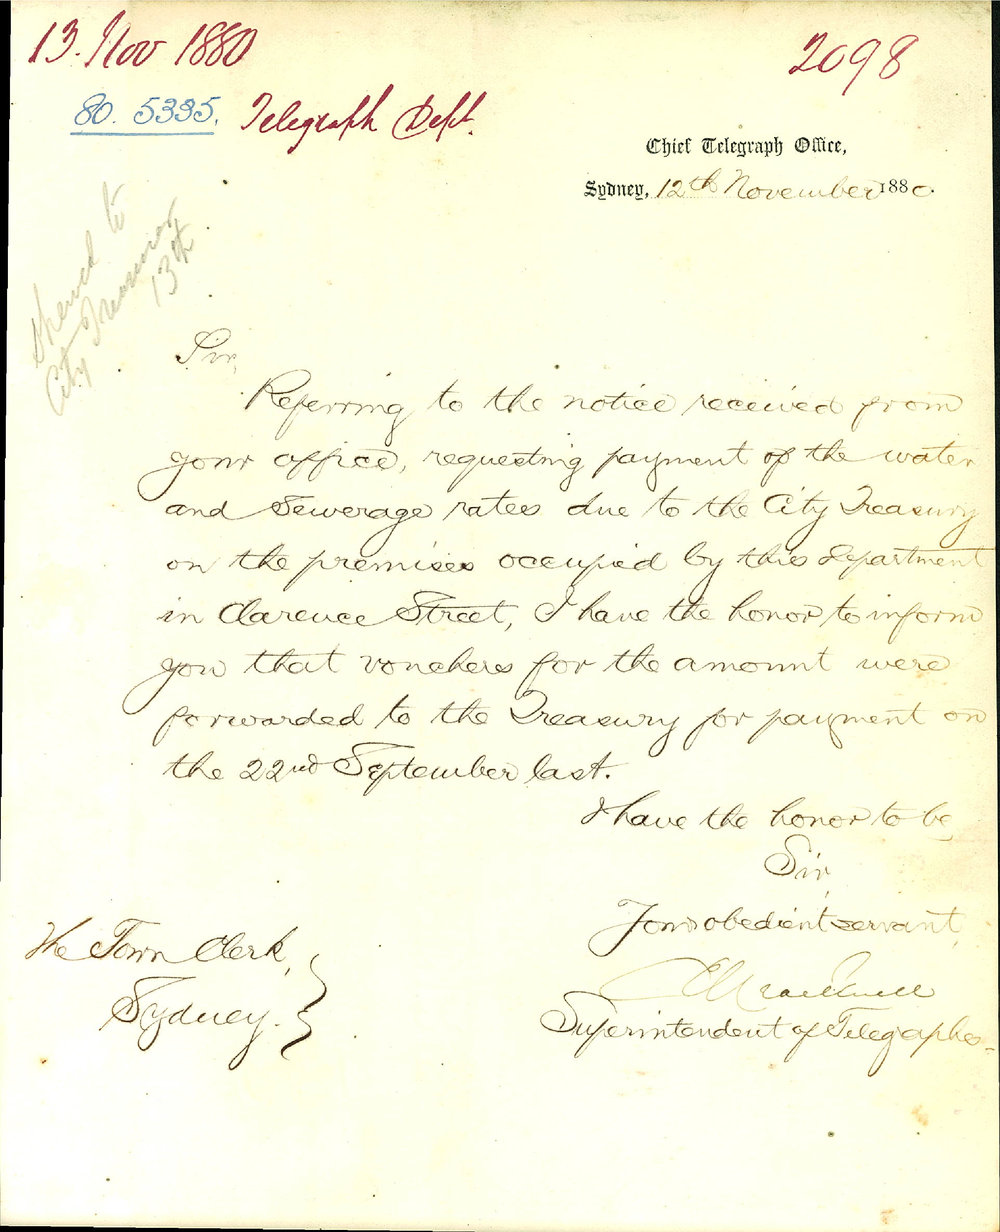 13. Nov 1880
2098
80. 5335. Telegraph Dept.
Chief Telegraph Office,
Sydney, 12th November 1880.
to
City Treasurer
13th
Sir,
Referring to the notice received from
your office, requesting payment of the water
and Sewerage rates due to the City Treasury
on the premises occupied by this department
in Clarence Street, I have the honor to inform
you that vouchers for the amount were
forwarded to the Treasury for payment on
the 22nd September last.
I have the honor to be,
Sir,
Your obedient servant,
E C Cracknell
Superintendent of Telegraphs.
The Town Clerk,
Sydney.